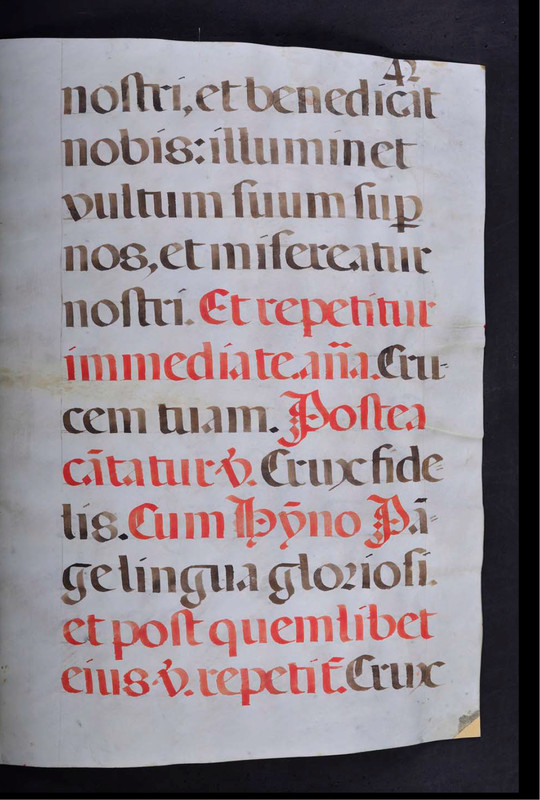 42
noſtri, et benedicat
nobis: illuminet
vultum ſuum ſuꝑ
nos, et miſereatur
noſtri. Et repetitur
immediate. an̄a. Cru-
cem tuam. Poſtea
cātatur. ℣. Crux fide-
lis. Cum Hȳno Pā-
ge lingua glorioſi.
et poſt quemlibet
eius. ℣. repetit̄. Crux